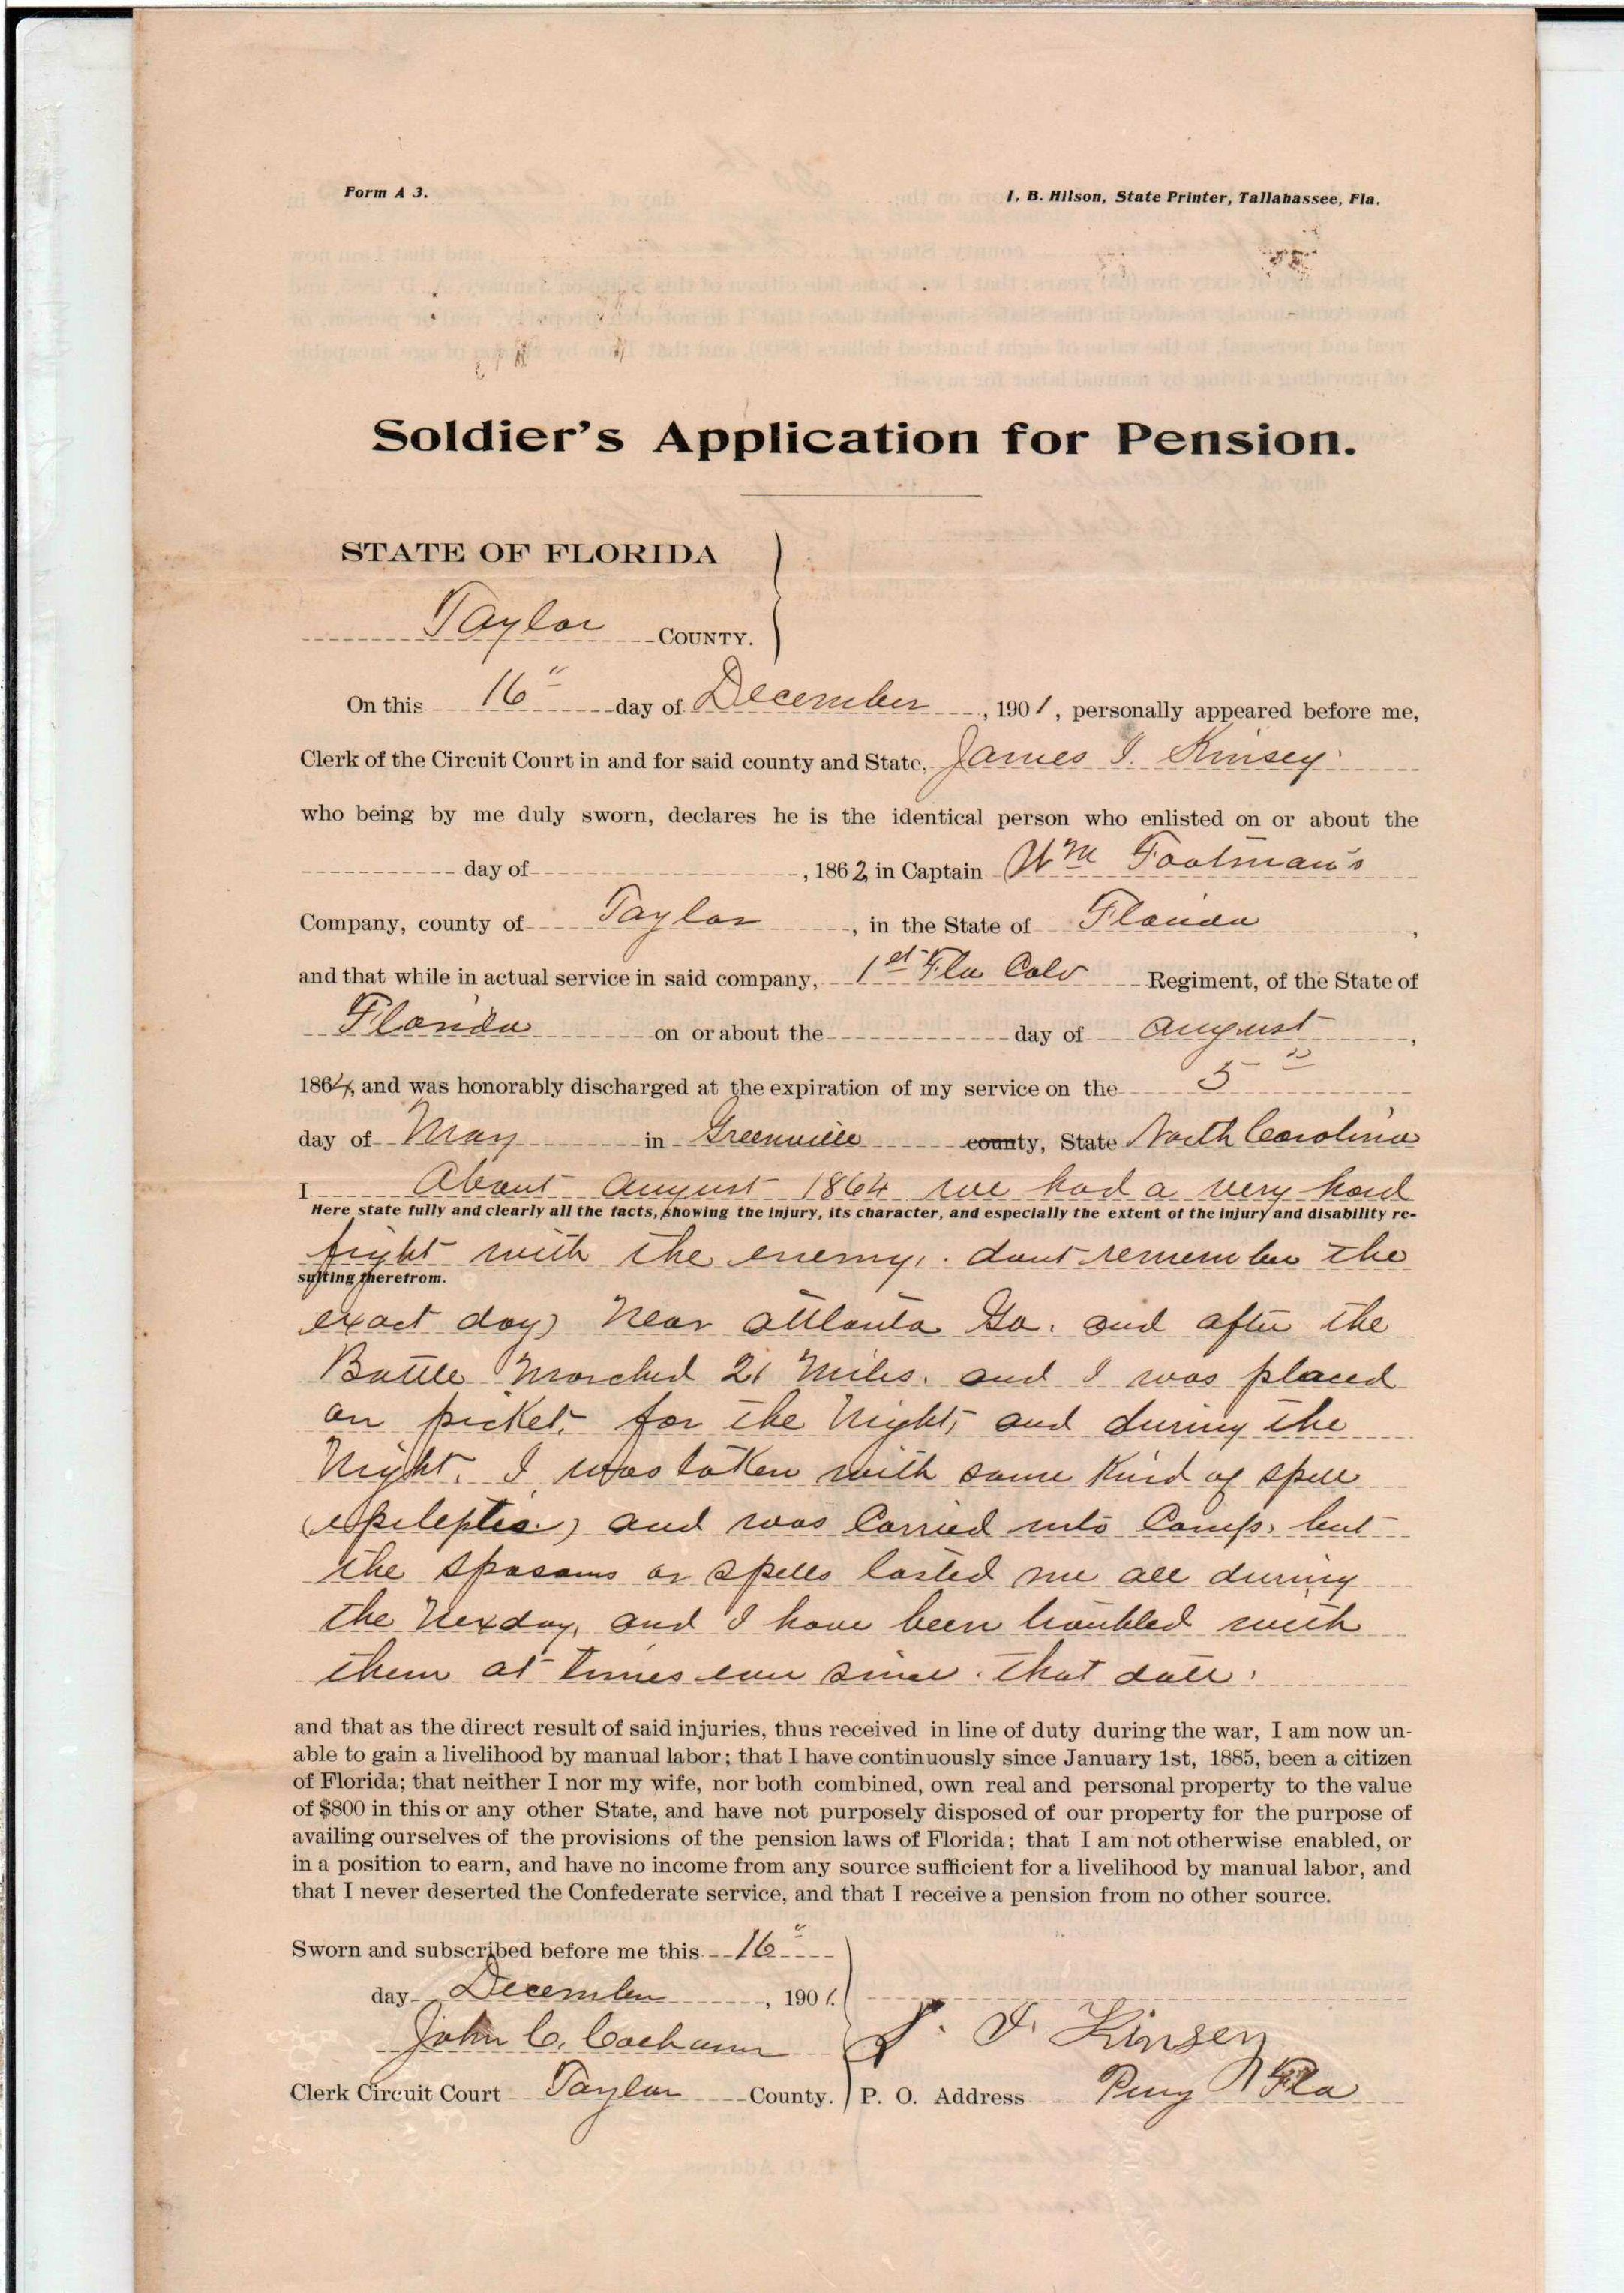 Form A 3.
I. B. Hilson, State Printer, Tallahassee, Fla.
Soldier's Application for Pension.
STATE OF FLORIDA
Taylor COUNTY.
On this 16" day of December, 1901, personally appeared before me,
Clerk of the Circuit Court in and for said county and State, James I. Kinsey
who being by me duly sworn, declares he is the identical person who enlisted on or about the
day of , 1862, in Captain Wm Footman's
Company, county of Taylor, in the State of Florida,
and that while in actual service in said company, 1st Fla Calv Regiment, of the State of
Florida on or about the day of August,
1864, and was honorably discharged at the expiration of my service on the 5"
day of May in Greenville county, State North Carolina
I About August 1864 we had a very hard
Here state fully and clearly all the facts, showing the injury, its character, and especially the extent of the injury and disability re-
fight with the enemy, dont remember the
sulting therefrom.
exact day) Near Atlanta Ga. and after the
Battle Marched 21 Miles. and I was placed
on picket, for the Night, and during the
Night. I was taken with some Kind of spell
(epileptic) and was Carried into Camp, but
the spasams or spells lasted me all during
the Nexday, and I have been troubled with
them at times ever since that date.
and that as the direct result of said injuries, thus received in line of duty during the war, I am now un-
able to gain a livelihood by manual labor; that I have continuously since January 1st, 1885, been a citizen
of Florida; that neither I nor my wife, nor both combined, own real and personal property to the value
of $800 in this or any other State, and have not purposely disposed of our property for the purpose of
availing ourselves of the provisions of the pension laws of Florida; that I am not otherwise enabled, or
in a position to earn, and have no income from any source sufficient for a livelihood by manual labor, and
that I never deserted the Confederate service, and that I receive a pension from no other source.
Sworn and subscribed before me this 16"
day December, 1901.
John C. Calhoun
J. I. Kinsey
Clerk Circuit Court Taylor County.
P. O. Address Perry Fla